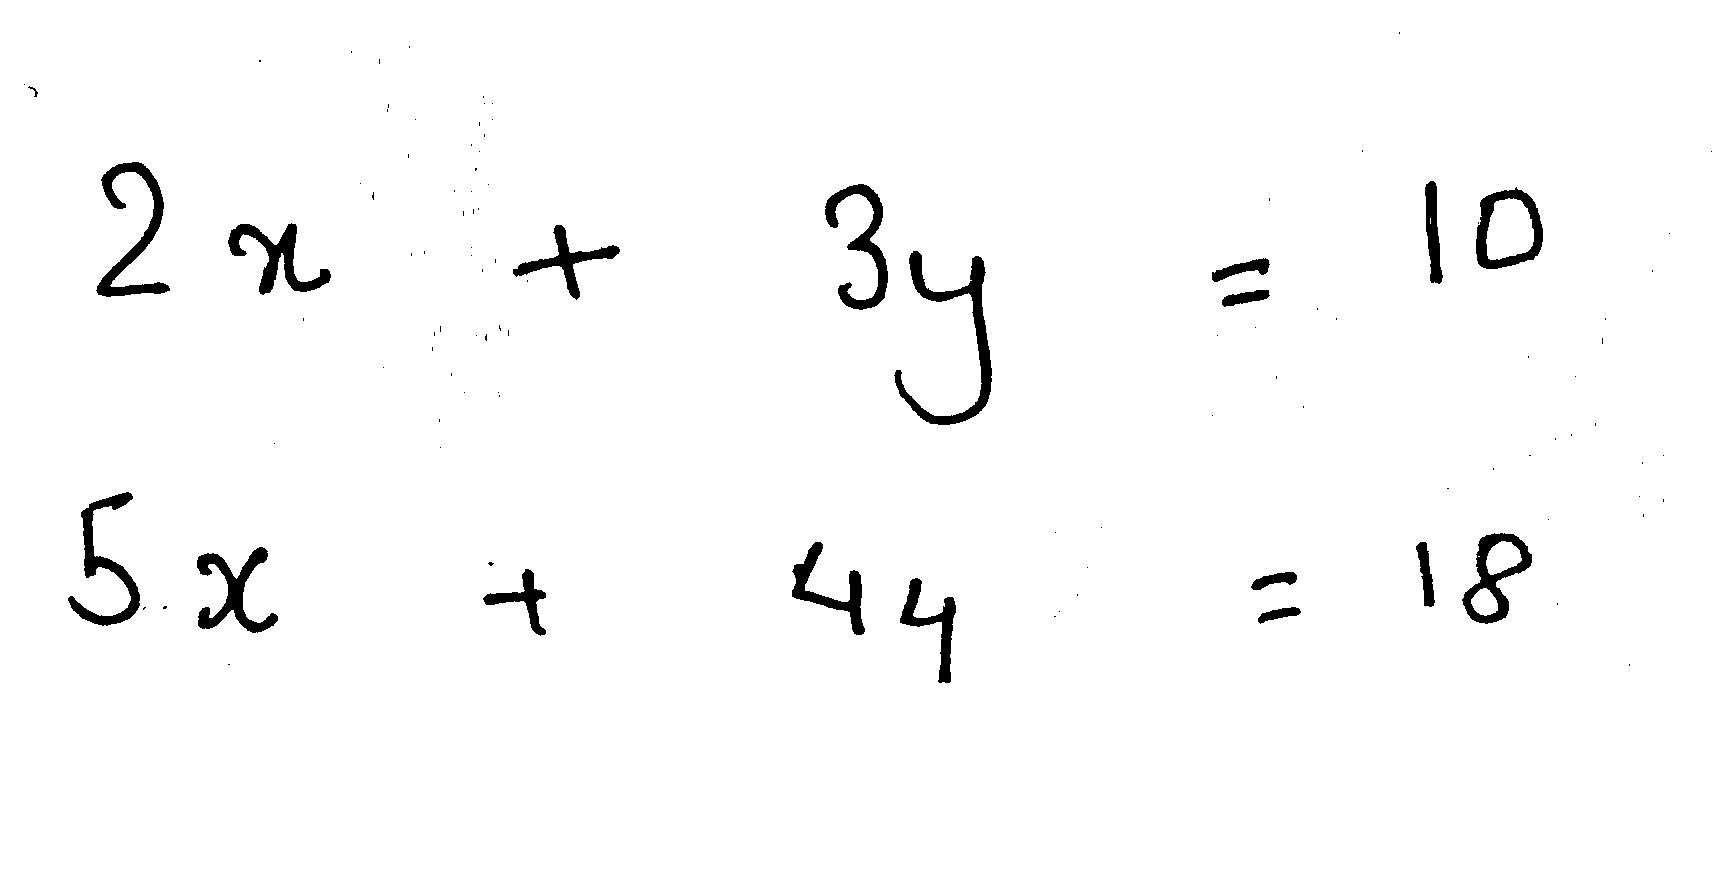 2x + 3y = 10
5x + 4y = 18